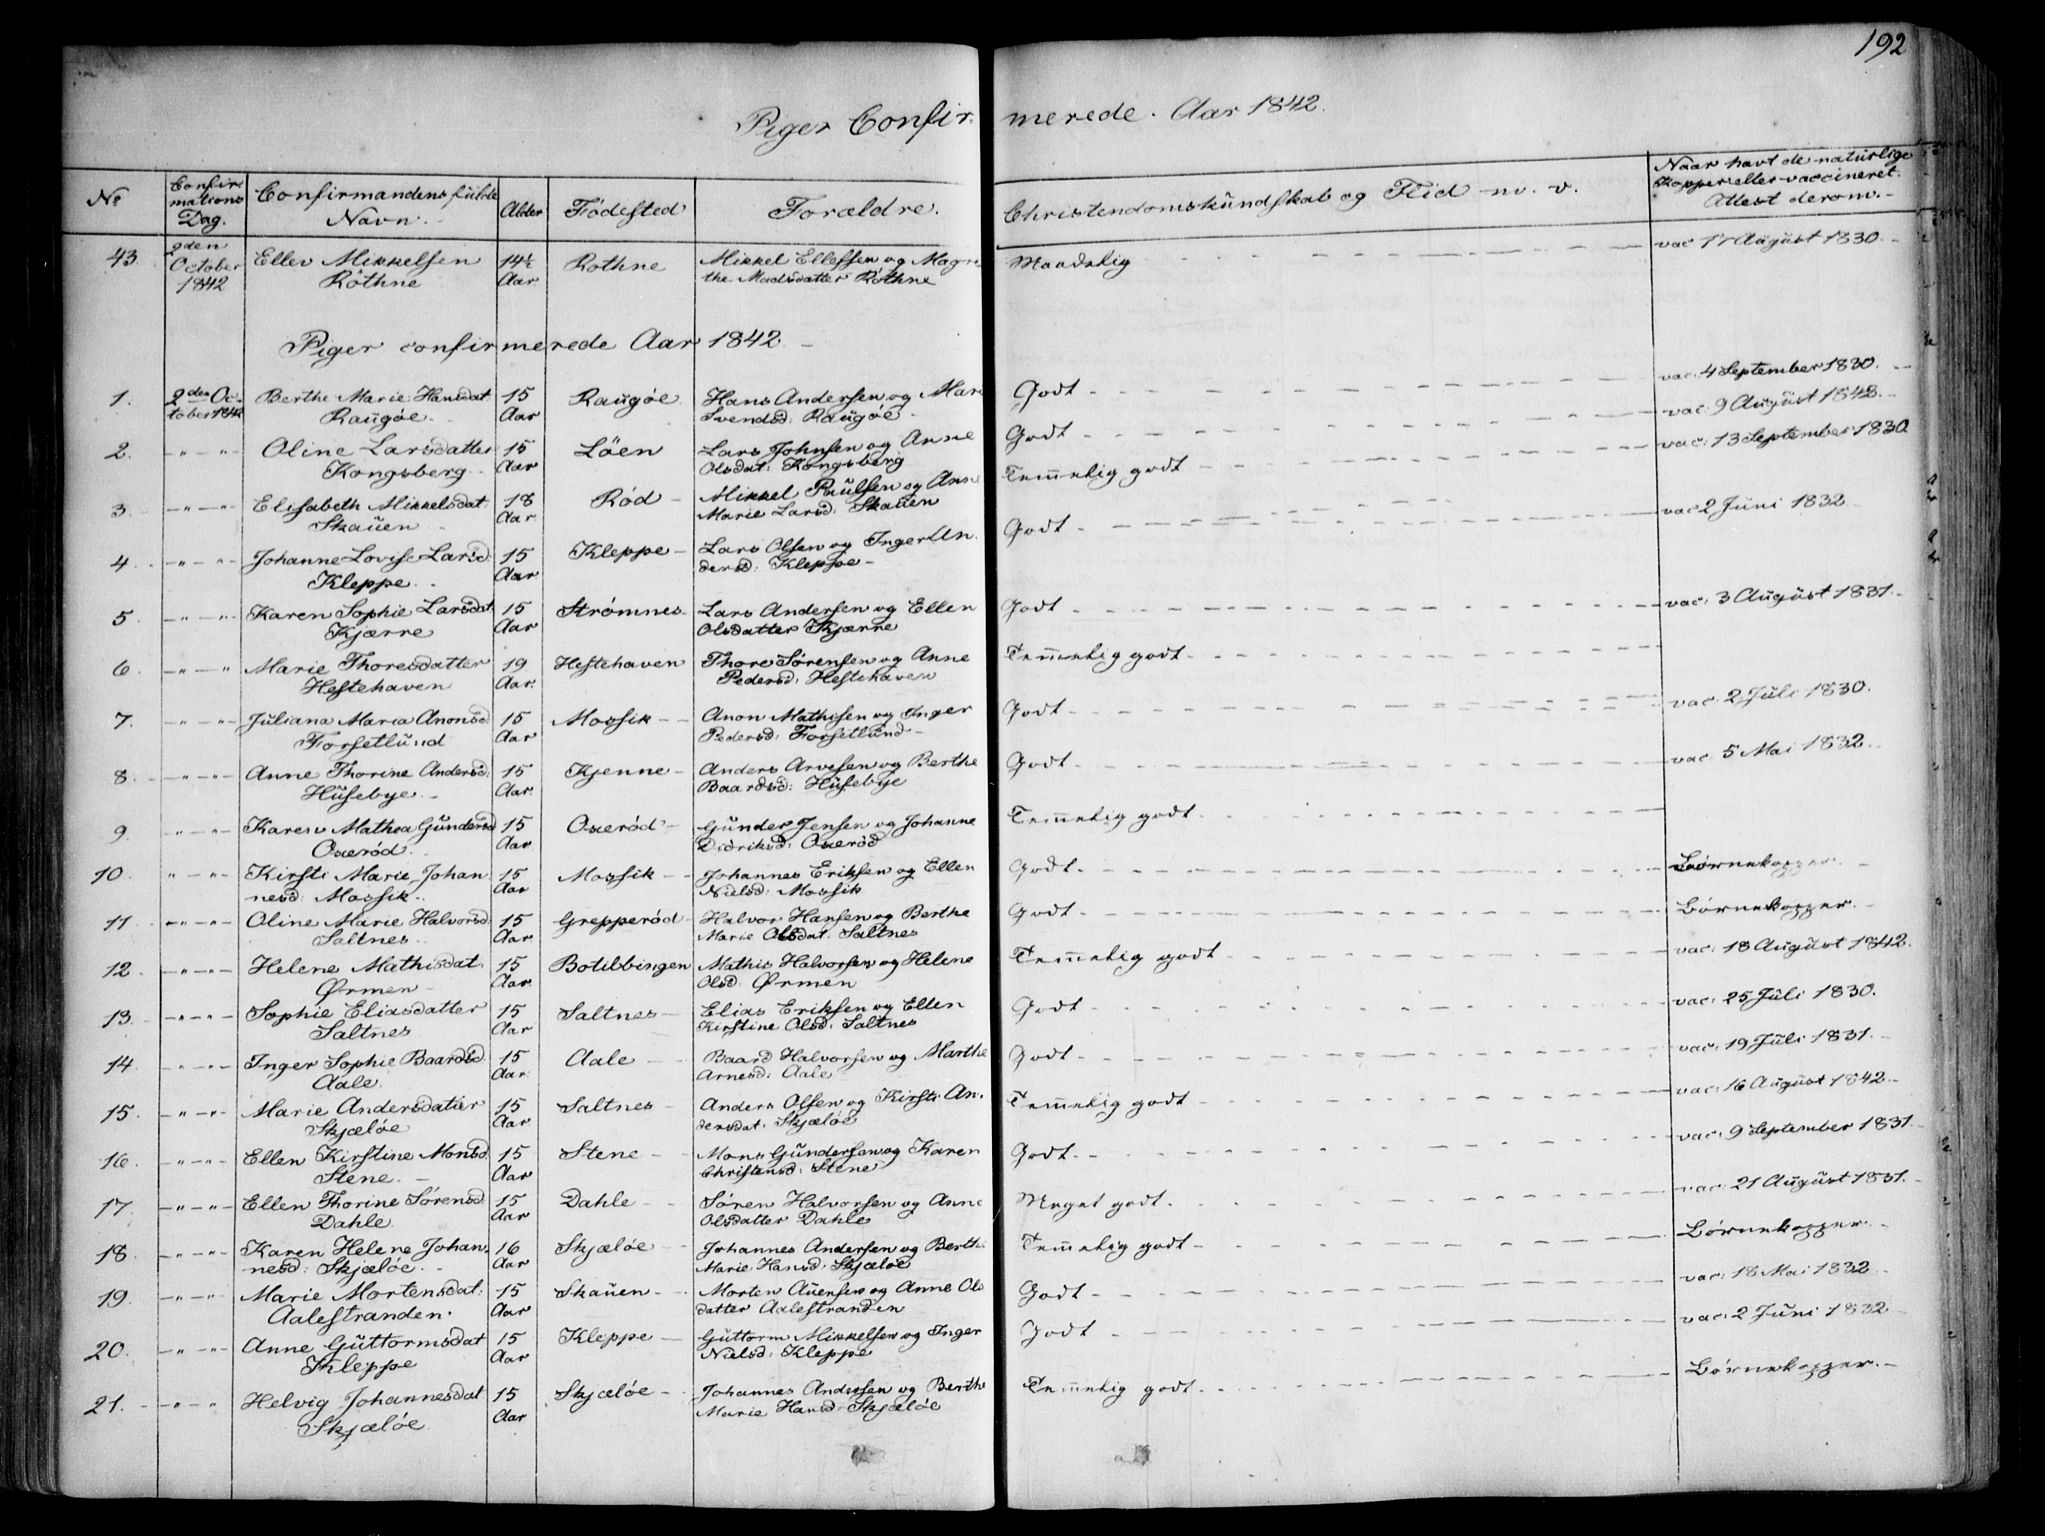 192
Piger Confirmerede. Aar 1842.
No Confirmations Dag. Confirmandens fulde Navn. Alder Fødested Forældre. Christendomskundskab og Flid m. v. Naar havt de naturlige Kopper eller vaccineret. Attest derom.
43. 2den October 1842 Ellev Mikkelsen 14½ Rothne Mikkel Ellefsen og Magre- Maadelig vac 17 August 1830.
Röthne Aar the Madsdatter Röthne
Piger confirmerede Aar 1842
1. 2den Oc- Berthe Marie Hansdat 15 Raugøe Hans Andersen og Mari Godt vac: 4 September 1830.
tober 1842 Raugøe. Aar Svendsd: Raugøe
2. -"-"- Oline Larsdatter 15 Löen Lars Johnsen og Anne Godt vac: 9 August 1842.
Kongsberg Aar Olsdat: Kongsberg
3. -"-"- Elisabeth Mikkelsdat. 18 Röd Mikkel Paulsen og Anne Temmelig godt vac: 13 September 1830
Skauen Aar Marie Larsd: Skauen
4. -"-"- Johanne Lovise Larsd: 15 Kleppe Lars Olsen og Inger An- Godt vac 2 Juni 1832
Kleppe. Aar dersd: Kleppe
5. -"-"- Karen Sophie Larsdat. 15 Strømnes Lars Andersen og Ellen Godt vac: 3 August 1831.
Kjærre Aar Olsdatter Kjærre
6. -"-"- Marie Thoresdatter 19 Hestehaven Thore Sørensen og Anne Temmelig godt
Hestehaven Aar. Pedersd: Hestehaven
7. -"-"- Juliana Maria Anonsd. 15 Mossik Anon Mathisen og Inger Godt vac: 2 Juli 1830.
Forsetlund Aar Pedersd: Forsetlund
8. -"-"- Anne Thorine Andersd. 15 Kjenne Anders Arvesen og Berthe Godt vac: 5 Mai 1832.
Husebye. Aar. Baardsd: Husebye
9. -"-"- Karen Mathea Gundersd 15 Oxerød Gunder Jensen og Johanne Temmelig godt
Oxerød. Aar Didriksd: Oxerød
10. -"-"- Kirsti Marie Johan- 15 Mossik Johannes Eriksen og Ellen Godt Børnekopper.
nesd: Mossik. Aar Nielsd: Mossik
11 -"-"- Oline Marie Halvorsd. 15 Grepperød Halvor Hansen og Berthe Godt Børnekopper.
Saltnes. Aar Marie Olsdat: Saltnes
12 -"-"- Helene Mathisdat. 15 Botilbbingen Mathis Halvorsen og Helene Temmelig godt vac: 18 August 1842.
Ørmen Aar Olsd: Ørmen
13. -"-"- Sophie Eliasdatter 15 Saltnes Elias Eriksen og Ellen Godt vac: 25 Juli 1830.
Saltnes Aar Kirstine Olsd: Saltnes
14. -"-"- Inger Sophie Baardsd. 15 Aale Baard Halvorsen og Marthe Godt vac: 19 Juli 1831.
Aale. Aar. Arnesd: Aale
15. -"-"- Marie Andersdatter 15 Saltnes Anders Olsen og Kirsti An- Temmelig godt vac: 16 August 1842.
Skjæløe Aar dersdat: Skjæløe
16. -"-"- Ellen Kirstine Monsd. 15 Stene Mons Gundersen og Karen Godt. vac: 9 September 1831.
Stene. Aar Christensd: Stene
17. -"-"- Ellen Thorine Sørensd. 15 Dahle Søren Halvorsen og Anne Meget godt. vac: 21 August 1831.
Dahle. Aar Olsdatter Dahle
18. -"-"- Karen Helene Johan- 16 Skjæløe Johannes Andersen og Berthe Temmelig godt Børnekopper.
nesd: Skjæløe. Aar Marie Hansd: Skjæløe
19. -"-"- Marie Mortensdat: 15 Skauen Morten Auensen og Anne Ols Godt vac: 18 Mai 1832
Aalestranden. Aar datter Aalestranden
20. -"-"- Anne Guttormsdat 15 Kleppe Guttorm Mikkelsen og Inger Godt vac: 2 Juni 1832
Kleppe Aar Nielsd: Kleppe
21. -"-"- Helvig Johannesdat 15 Skjæløe Johannes Andersen og Berthe Temmelig godt Børnekopper.
Skjæløe. Aar Marie Hansd: Skjæløe